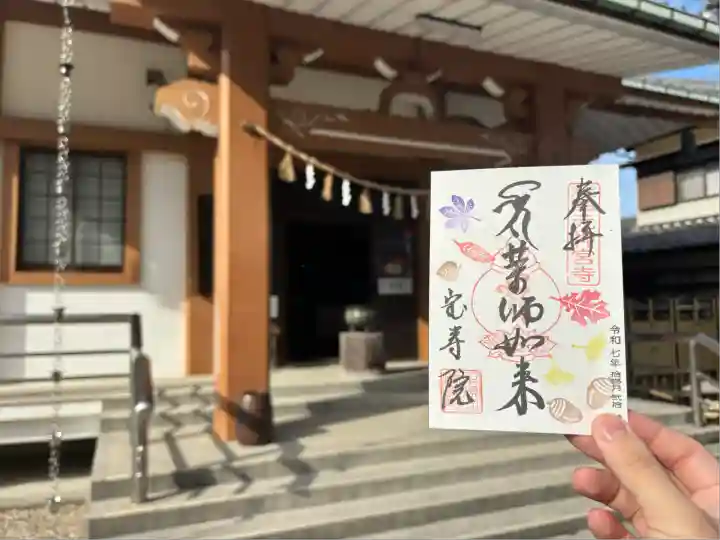 奉拝
薬師如来
宝寿院
令和七年拾壹月弐拾